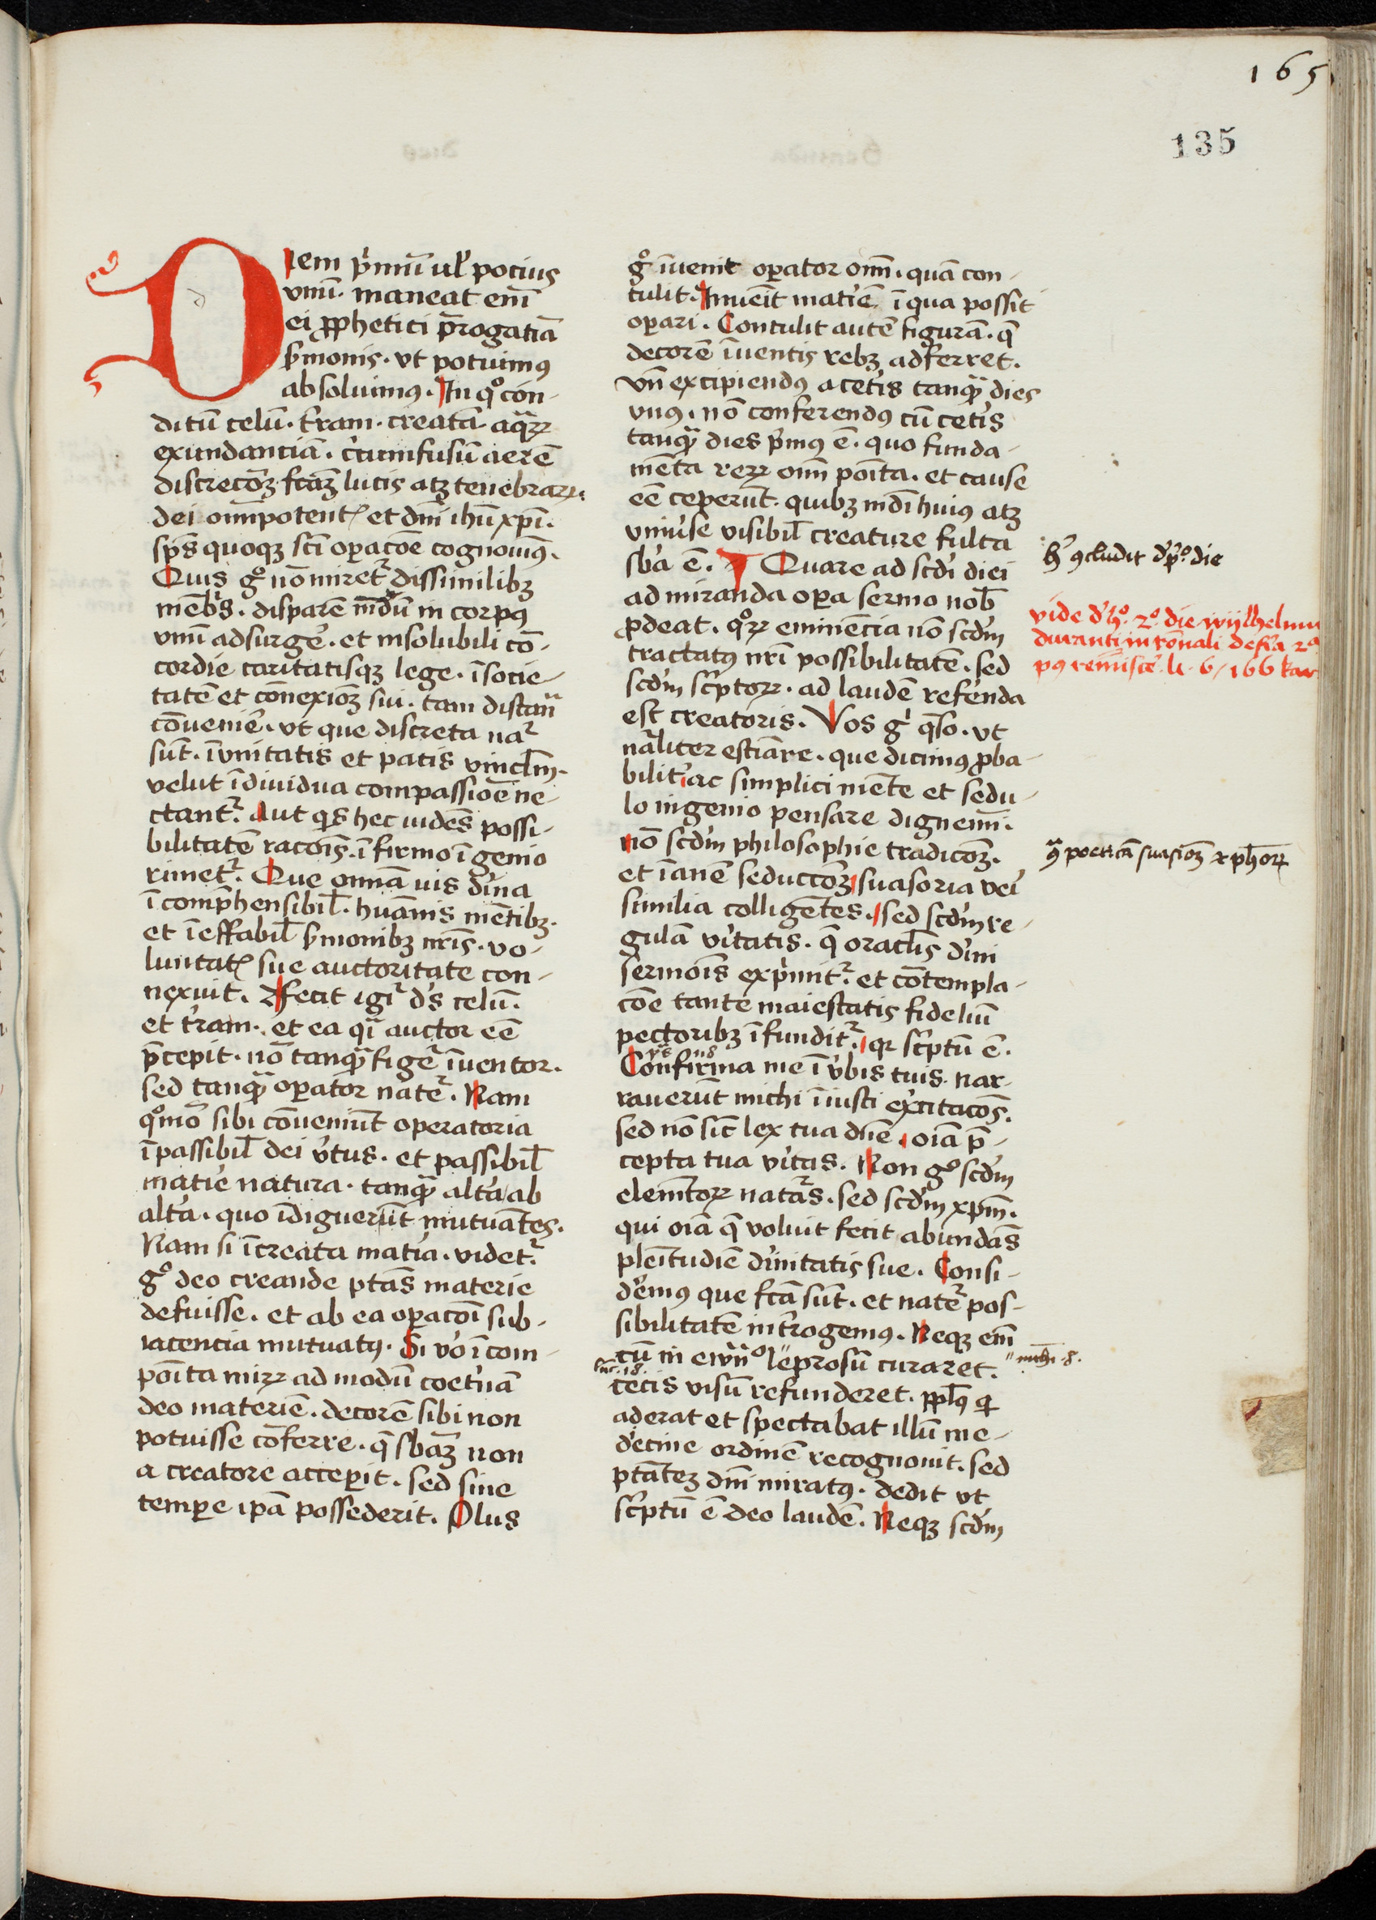 165
135
Diem p̄mū ul' pocius
vnū. maneat em̄
ei ꝓphetici p̄rogatīa
ẜmonis. vt potuimꝰ
absoluimꝰ. In qͦ con-
ditū celū. t'ram. creatā. aq̄ꝝ
exundanciā. c'cumfusū aerē
discrecōꝫ fcāꝫ lucis atꝫ tenebraꝝ.
dei om̄ipotent' et dm̄ ihū xp̄i.
sp̄s quoqꝫ sc̄i oꝑacōe cognouimꝰ.
Quis gͦ nō miret' dissimilibꝫ
mēb's. disparē mūdū in corpꝰ
vnū adsurge'. et insolubili cō-
cordie caritatisqꝫ lege. ī socie-
tatē et conexiōꝫ sui. tam distan̄
cōuenie'. vt que discreta na'
sūt. ī vnitatis et pacis vincl'm.
velut īdiuidua compassiōe ne-
ctant'. Aut qͥs hec uidēs possi-
bilitatē racōis. ī firmo īgenio
rimet'. Que om̄ia uis d'ina
īcomp̄hensibil'. hūanis mētibꝫ.
et īeffabil' ẜmonibꝫ nr̄is. vo-
luntat' sue auctoritate con-
nexuit. Fecit igr' ds̄ celū.
et t'ram. et ea qͥ auctor eē
p̄cepit. nō tanqͣ fige' īuentor.
sed tanqͣ oꝑator nat'e. Nam
qͦmō sibi cōueniūt operatoria
īpassibil' dei v'tus. et passibil'
mat'ie natura. tanqͣ alt'a ab
alt'a. quo īdiguerūt mutuātes.
Nam si īcreata mat'ia. videt'
gͦ deo creande p̄tās materie
defuisse. et ab ea oꝑacōi sub-
iacencia mutuatꝰ. Si v'o īcom-
pōita miꝝ ad modū coet'nā
deo materiē. decorē sibi non
potuisse cōferre. q̄ sb'aꝫ non
a creatore acceꝑit. sed sine
tempore ipā possederit. Plus
gͦ īuenit oꝑator om̄. quā con-
tulit. Inuēit mat'iē ī qua possit
oꝑari. Contulit autē figurā. q̄
decorē īuentis rebꝫ adferret.
Vn̄ excipiendꝰ a cet'is tanqͣ dies
vnꝰ. nō conferendꝰ cū cet'is
tanqͣ dies p̄mꝰ ē. quo funda-
mēta reꝝ om̄ pōita. et cause
eē ceperūt. quibꝫ mdī huius atꝫ
vniu'se visibil' creature fulta
sb'a ē. Quare ad scd'i diei
admiranda oꝑa sermo nob̄
ꝓdeat. qͦꝝ eminēcia nō scd'm
tractatꝰ nr̄i possibilitatē. sed
scd'm sc'ptoꝝ. ad laudē ref'enda
est creatoris. Vos gͥ qͣso. vt
nāliter estiāre. que dicimꝰ ꝓba-
bilit'. ac simplici mēte et sedu-
lo ingenio pensare dignem̄i.
nō scd'm philosophie tradicōꝫ.
et īanē seduccōꝫ suasoria ve'i
similia colligētes. sed scd'm re-
gulā v'itatis. q̄ oracl'is d'ini
sermōis exp̄mit'. et cōtempla-
cōe tante maiestatis fideliū
pectoribꝫ īfundit'. qr sc'ptū ē.
Confirma me ī v'bis tuis. nar-
rauerūt michi īiusti ex'citacōs.
sed nō sic̄ lex tua dn̄e. oīa p̄-
cepta tua v'itas. Non gͦ scd'm
elemētoꝝ nat'as. sed scd'm xp̄m.
qui oīa q̄ voluit fecit abundās
pleītudīe d'initatis sue. Consi-
d'emꝰ que fc̄a sūt. et nat'e pos-
sibilitatē int'rogemus. Neqꝫ em̄
cū in ewn̄ͦ leprosū curaret.
cecis visū refunderet. ppl'ꝰ qͥ
aderat et spectabat illū me-
d'icine ordinē recognouit. sed
p̄tātꝫ dn̄i miratꝰ. dedit vt
sc'ptū ē deo laudē. Neqꝫ scd'm
h' ꝯcludit d' p'ͦ die
vide d' hͦ. 2ͦ. die wijlhelmū
duranti in rōnali
li. 6 / 166
poeticā suasiōꝫ